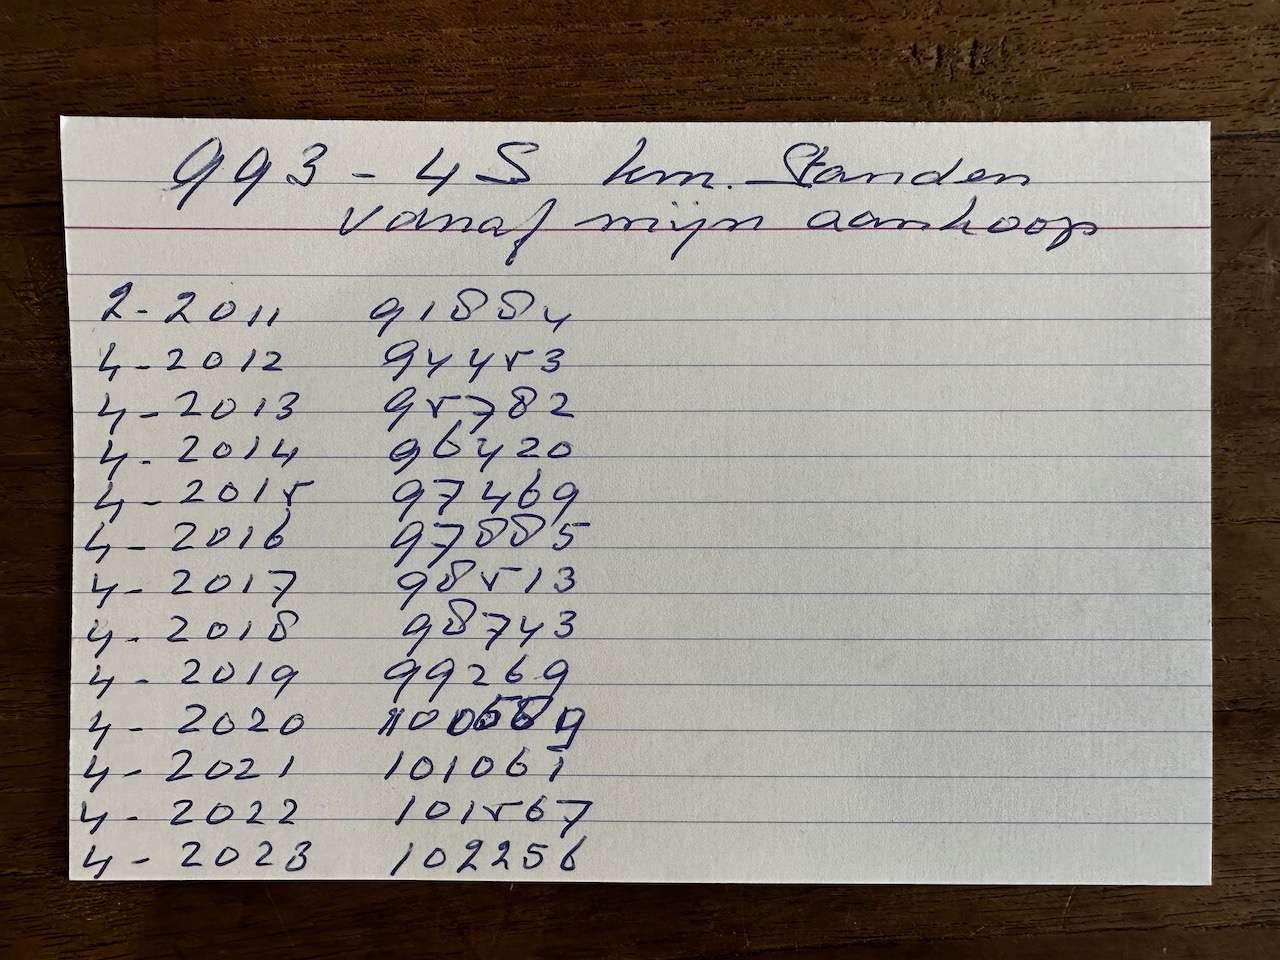 993 - 4S km. Standen
vanaf mijn aankoop
2-2011 91884
4-2012 94453
4-2013 95782
4-2014 96420
4-2015 97469
4-2016 97885
4-2017 98513
4-2018 98743
4-2019 99269
4-2020
4-2021 101061
4-2022 101567
4-2023 102256